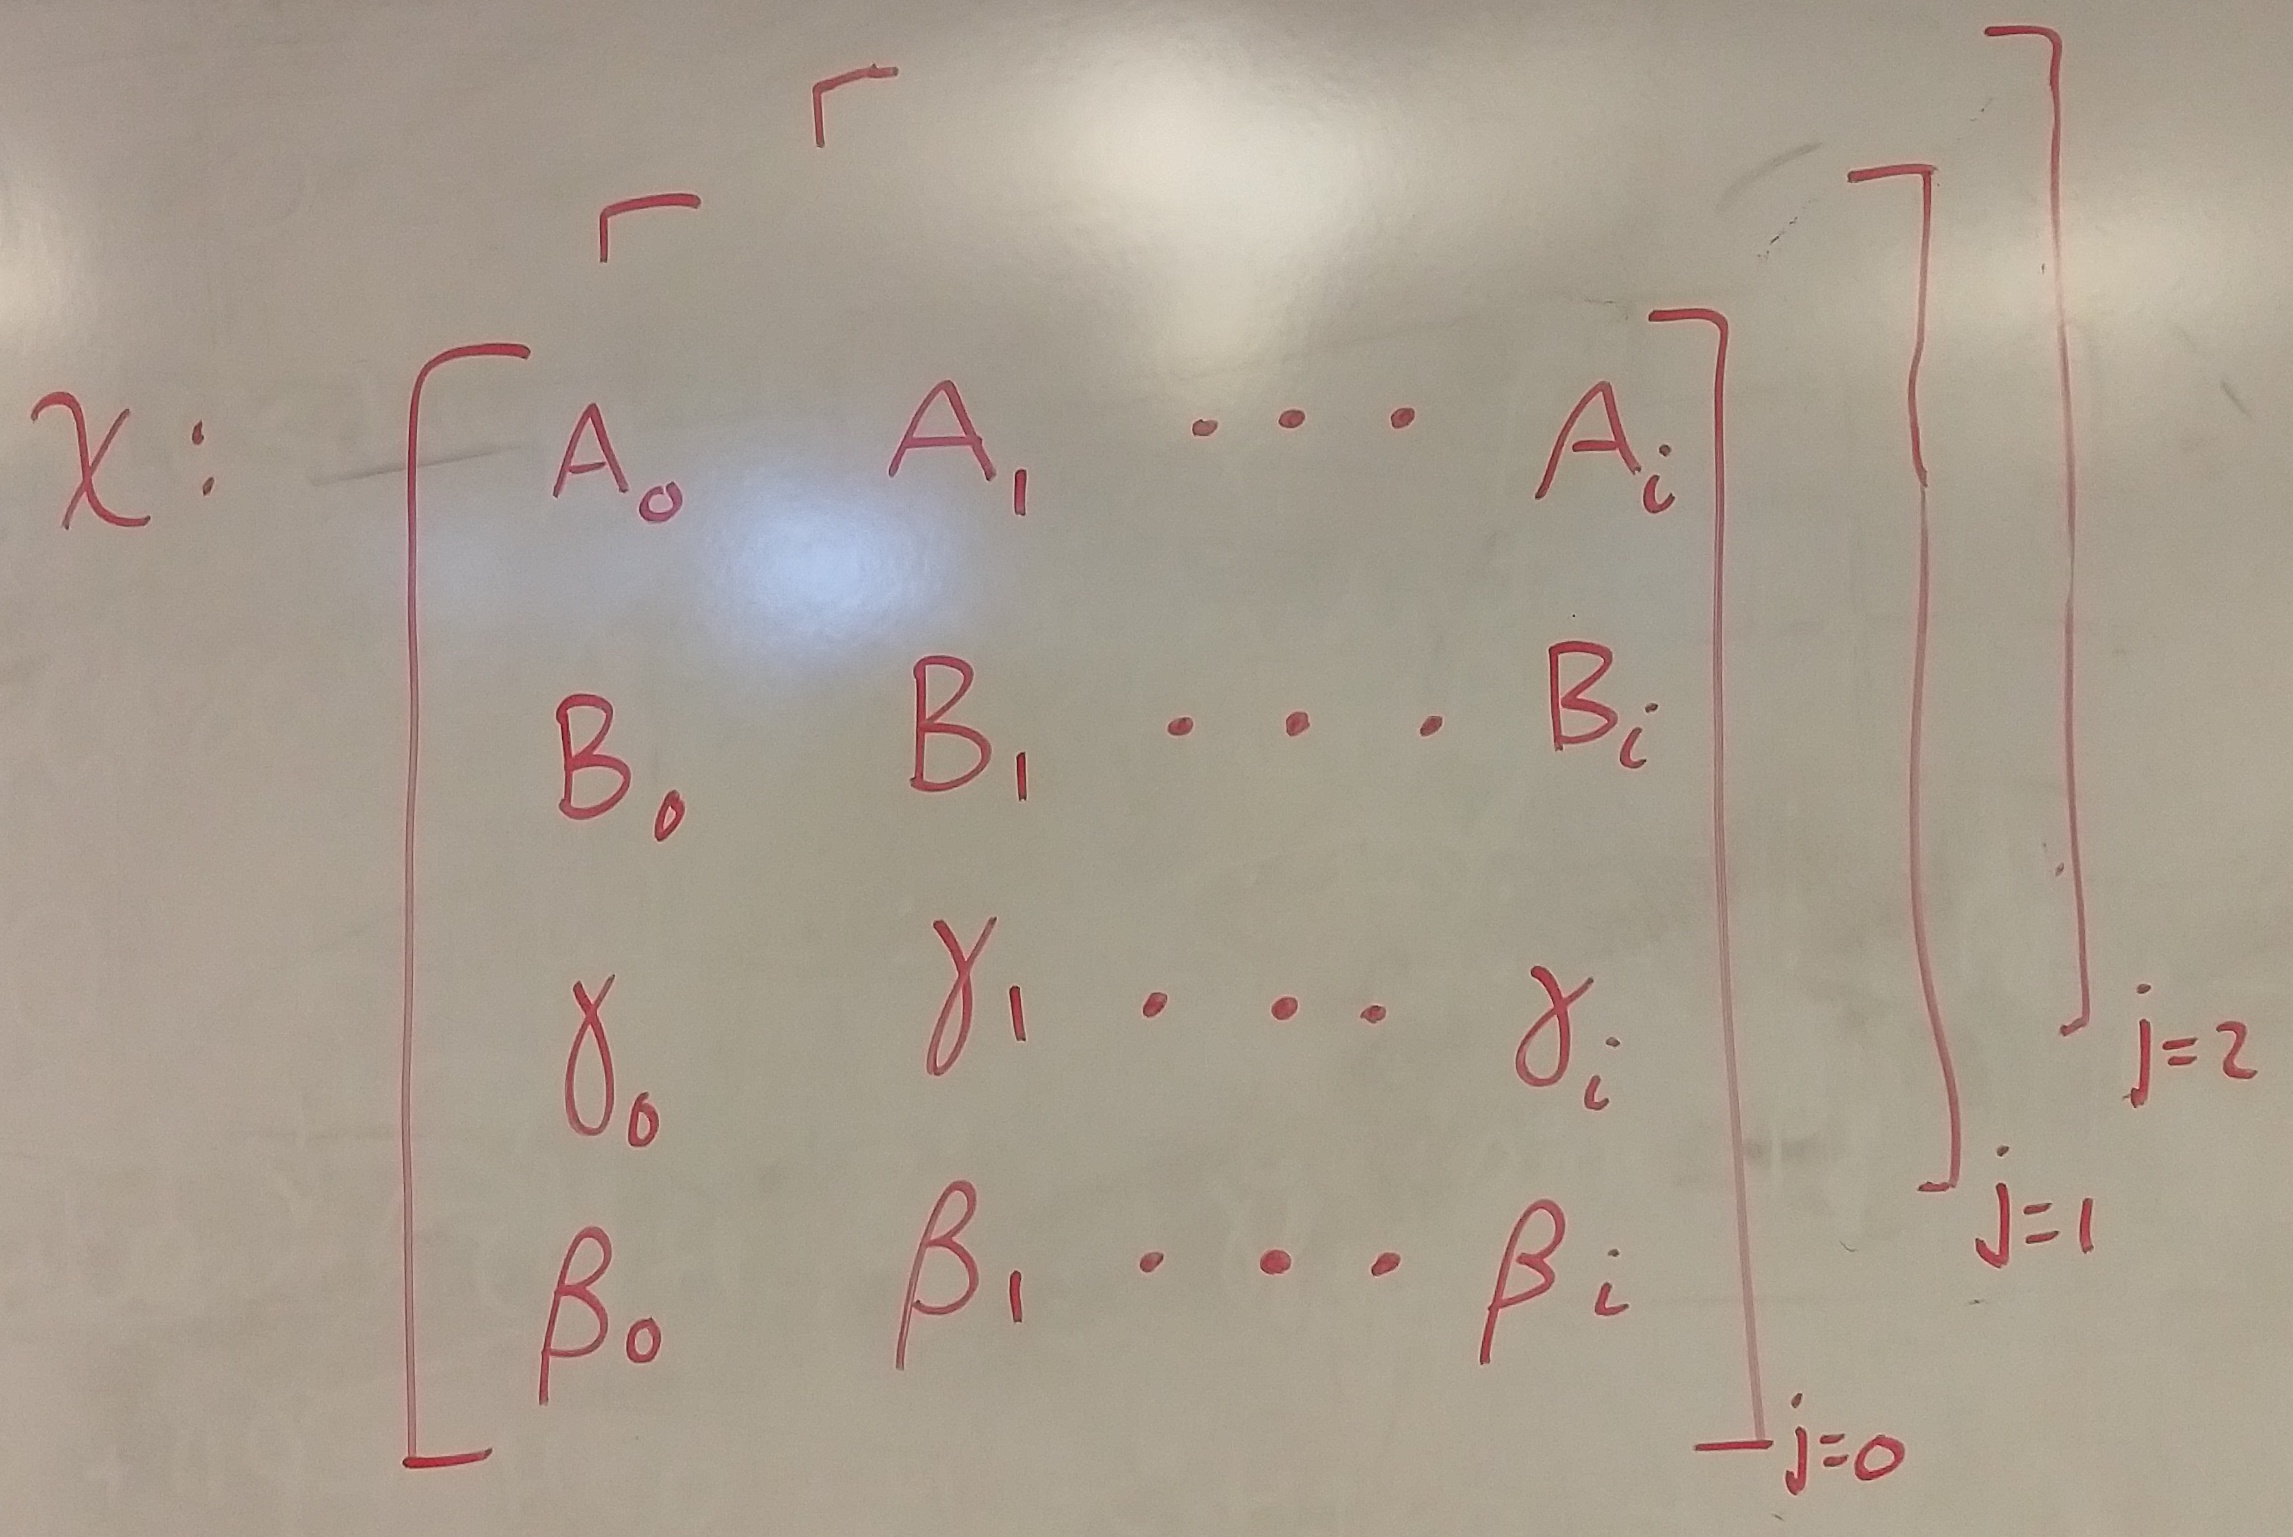 χ: A₀ A₁ ... Aᵢ
B₀ B₁ ... Bᵢ
γ₀ γ₁ ... γᵢ
β₀ β₁ ... βᵢ
j=2
j=1
j=0